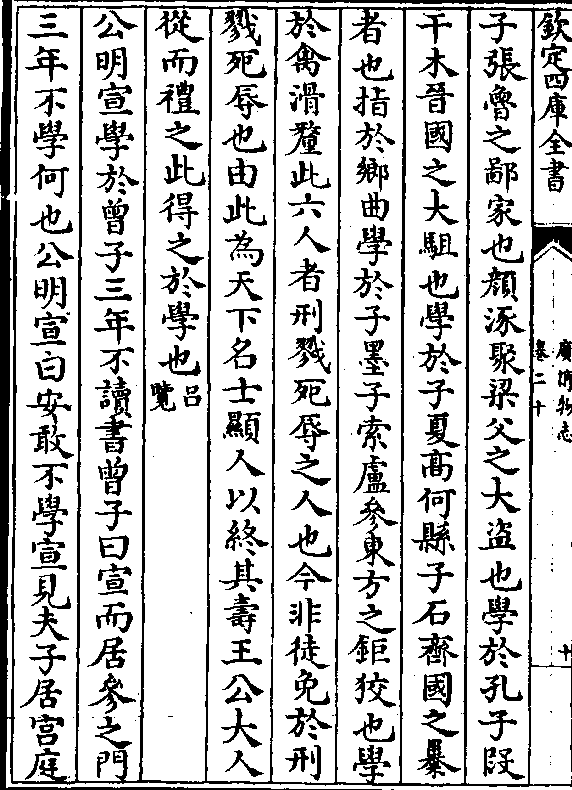 欽定四庫全書
廣博物志
卷二十
十
子張魯之鄙家也顔涿聚梁父之大盜也學於孔子段
干木晉國之大駔也學於子夏髙何縣子石齊國之暴
者也指於鄉曲學於子墨子索盧參東方之鉅狡也學
於禽滑釐此六人者刑戮死辱之人也今非徒免於刑
戮死辱也由此為天下名士顯人以終其壽王公大人
從而禮之此得之於學也吕
覽
公明宣學於曾子三年不讀書曾子曰宣而居參之門
三年不學何也公明宣曰安敢不學宣見夫子居宫庭